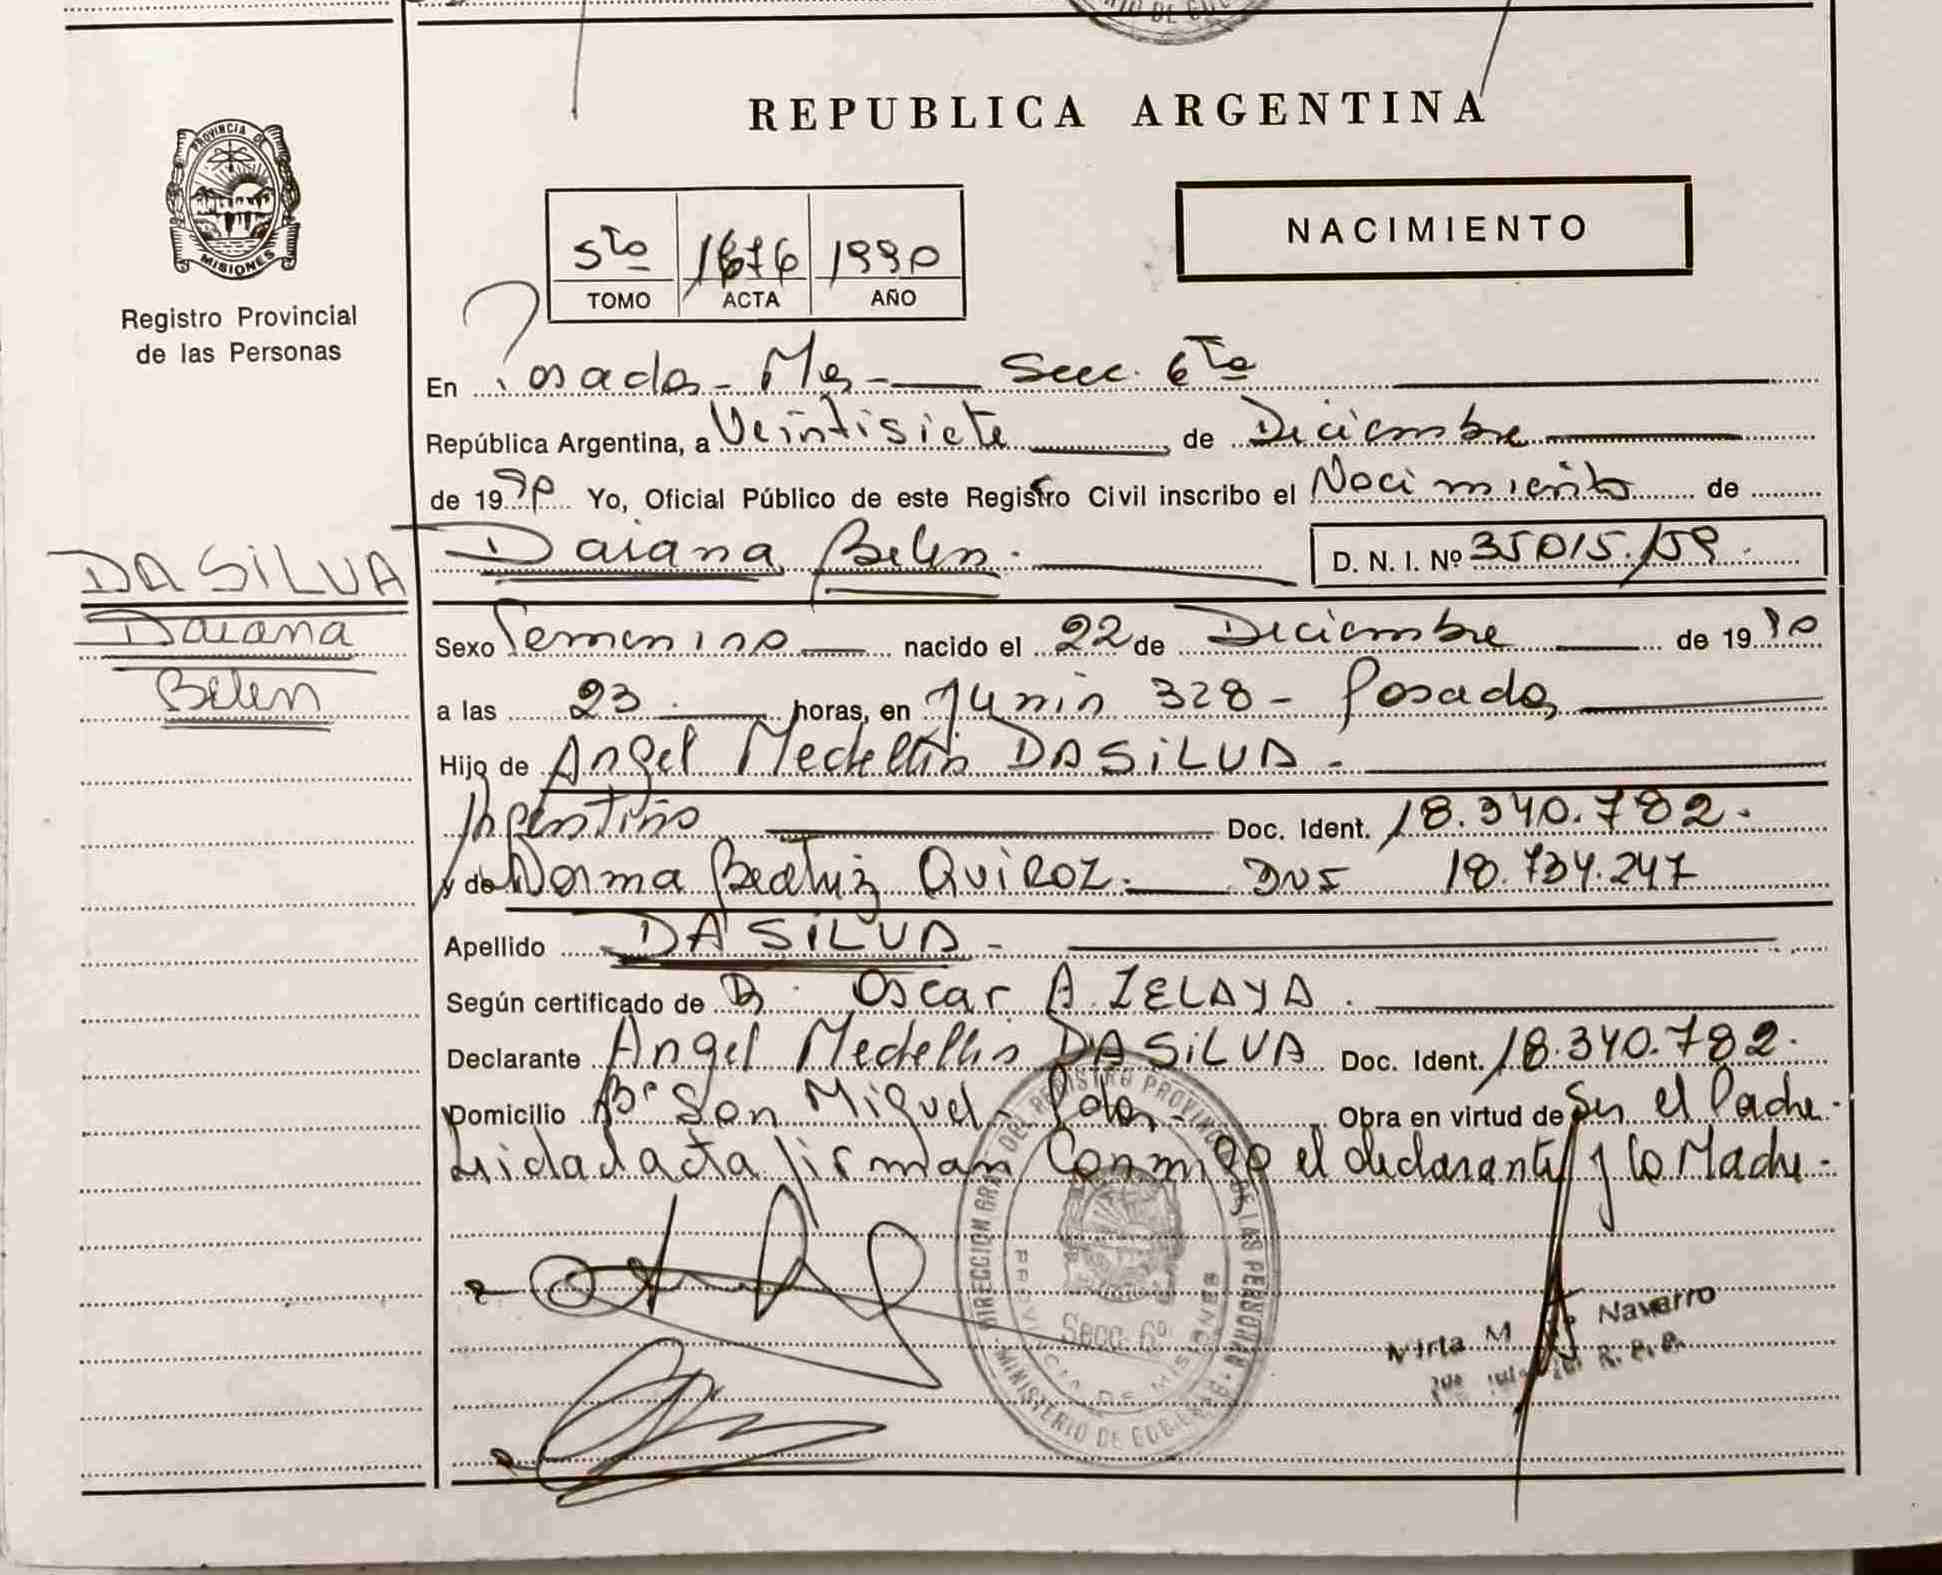 REPUBLICA ARGENTINA
PROVINCIA DE
MISIONES
Registro Provincial
de las Personas
NACIMIENTO
5to 1676 1990
TOMO ACTA AÑO
En Posadas - Ms - Secc. 6ta
República Argentina, a Veintisiete, de Diciembre
de 1990 Yo, Oficial Público de este Registro Civil inscribo el Nacimiento de
Daiana Belen. D. N. I. Nº 35.015.159.
DA SILVA
Daiana
Belen
Sexo Femenino nacido el 22 de Diciembre de 1990
a las 23. horas, en Junin 328 - Posadas
Hijo de Angel Medellin DA SILVA -
Argentino Doc. Ident. 18.340.782.
y de Norma Beatriz QUIROZ. DNI 18.734.247
Apellido DA SILVA -
Según certificado de Dr. Oscar A. ZELAYA.
Declarante Angel Medellin DA SILVA Doc. Ident. 18.340.782.
Domicilio Bº San Miguel - Pdas - Obra en virtud de Ser el Padre.
Leida el acta firman Conmigo el declarante y la Madre -
DIRECCION GRAL DEL REGISTRO PROVINCIAL DE LAS PERSONAS
MINISTERIO DE GOBIERNO
PROVINCIA DE MISIONES
Secc. 6º
Mirta M Navarro
R. P. P.